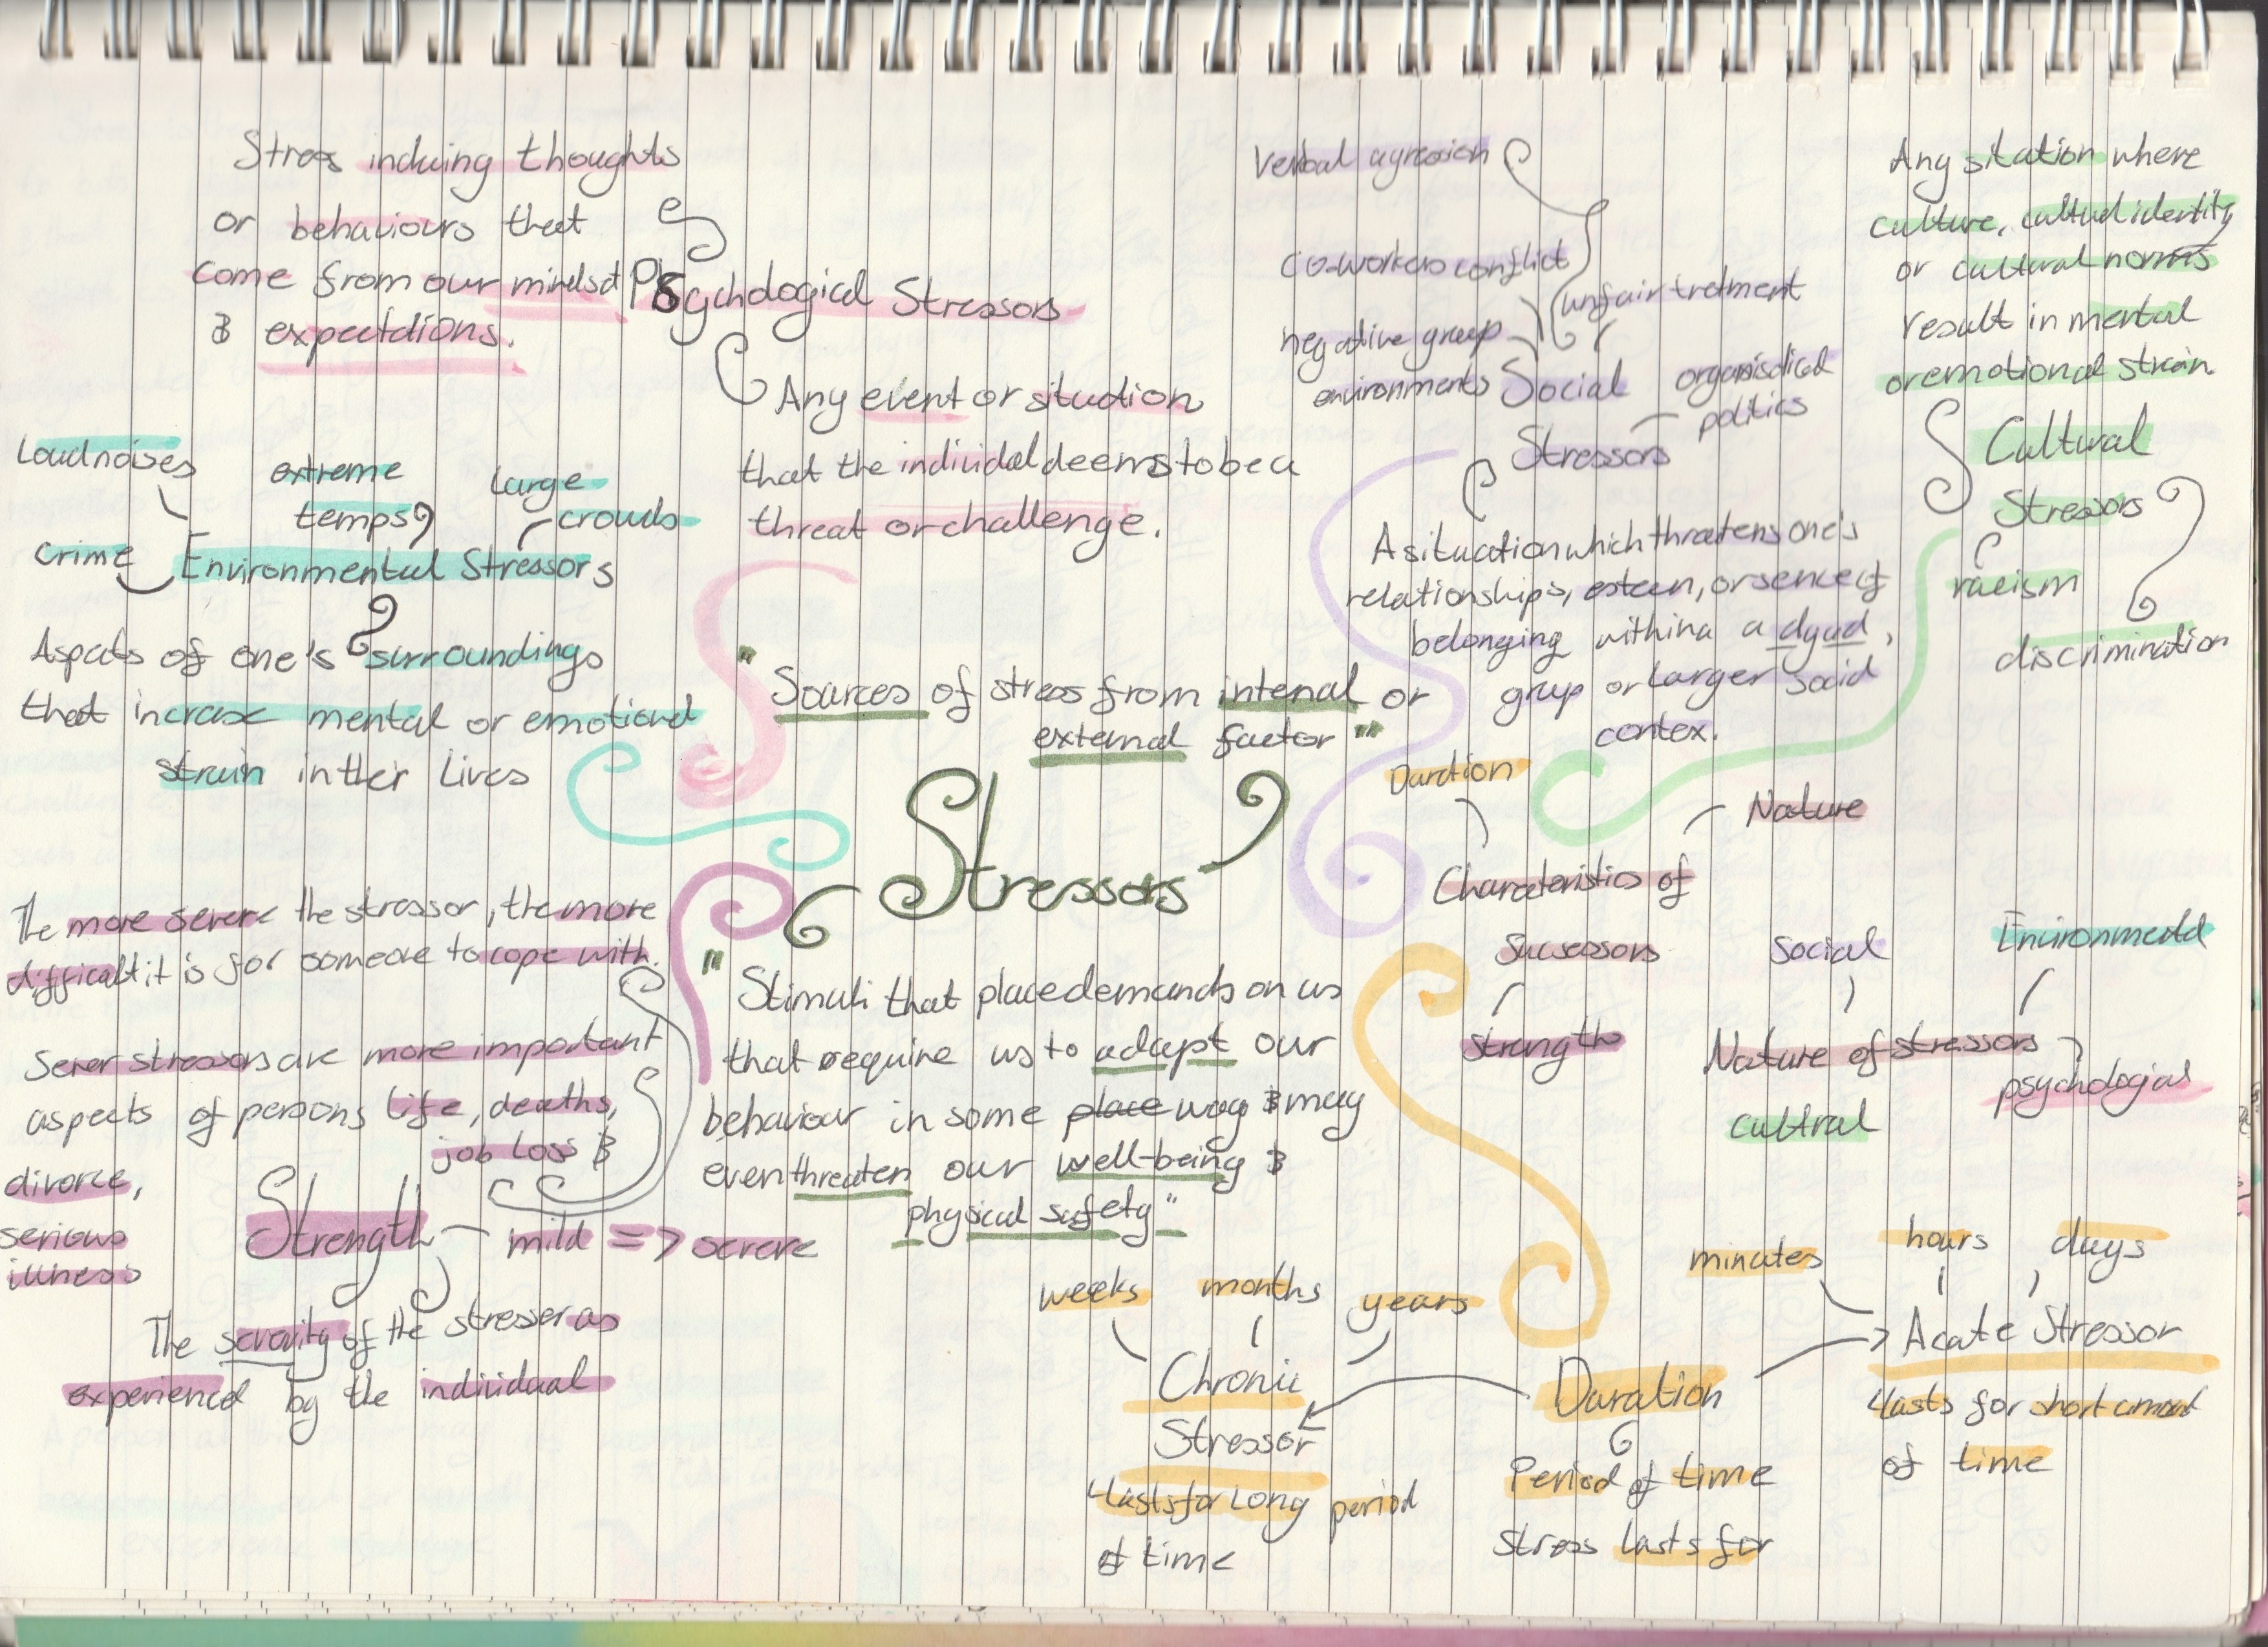 Stress inducing thoughts
or behaviours that
come from our mindset
& expectations.
Psychological Stressors
Any event or situation
that the individal deems to be a
threat or challenge.
Loud noises
extreme
temps
Large
crowds
crime
Environmental Stressors
Aspects of one's surroundings
that increase mental or emotional
strain in their lives
Verbal agression
co-workers conflict
unfair tretment
negative group
environments
organisational
politics
Social
Stressors
A situation which threatens one's
relationships, esteen, or sence of
belonging withina a dyad,
group or larger social
contex.
Any sitation where
culture, cultural identity
or cultural norms
result in mental
or emotional strain.
Cultural
Stressors
racism
discrimination
"Sources of stress from intenal or
external factor"
Stressors
"Stimuli that place demands on us
that require us to adapt our
behaviour in some place way & may
even threaten our well-being &
physical safety"
Duration
Nature
Characteristics of
Sucsessors
strength
Social
Environmental
Nature of stressors
psychological
cultral
The more severe the stressor, the more
difficult it is for someone to cope with.
Sever stressors are more important
aspects of persons life, deaths,
job loss &
divorce,
serious
illness
Strength
mild => severe
The severity of the stresser as
experienced by the individual
weeks
months
years
Chronic
Stressor
lasts for long period
of time
Duration
Period of time
stress lasts for
minutes
hours
days
Acute Stressor
lasts for short amount
of time